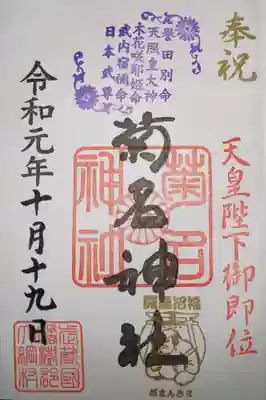 奉祝
天皇陛下御即位
誉田別命
天照皇大神
木花咲耶姫命
武内宿禰命
日本武尊
菊名神社
菊名
神社
令和元年十月十九日
武蔵國
橘樹郡
大綱村
がまんさま